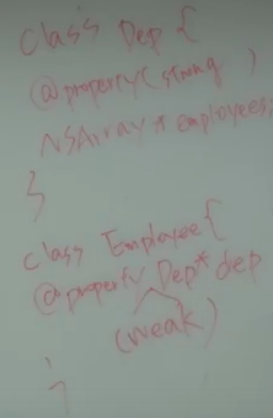 class Dep {
@property(strong )
NSArray * employees;
}
class Employee {
@property Dep* dep
(weak)
}